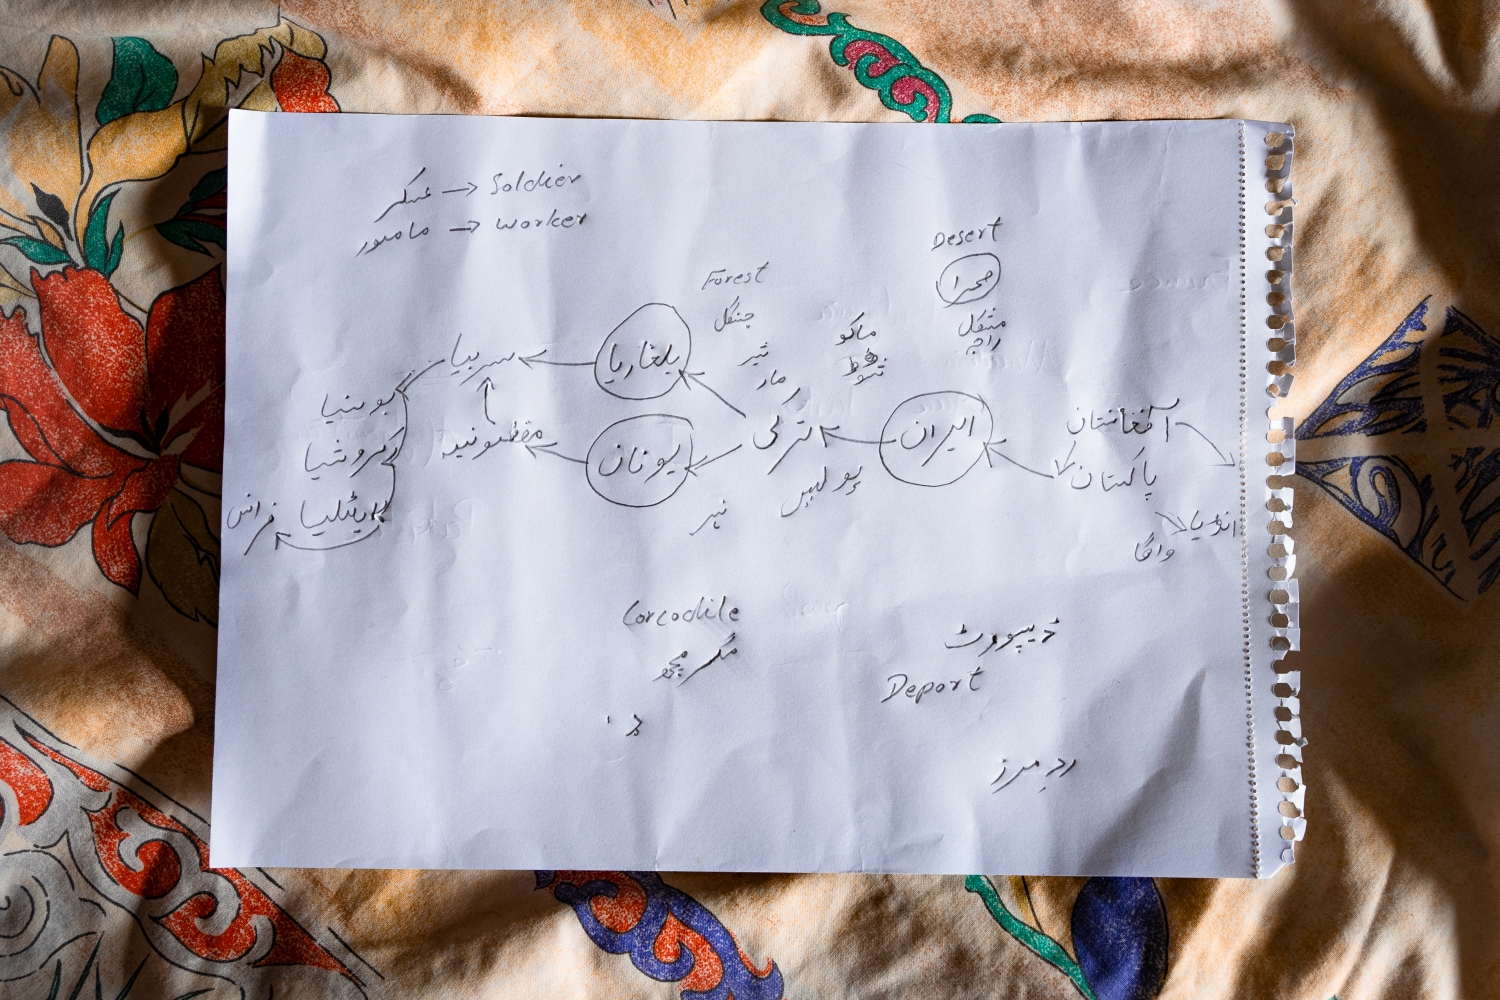 عسکر → Soldier
مامور → worker
Desert
صحرا
Forest
جنگل
مشکل
راچہ
ماکو
شیر
مار
بلغاریا
سربیا
افغانستان
ایران
ترکی
یونان
مقطونیہ
بوسنیا
کروشیا
پاکستان
پولیس
نہر
ایٹلیا
فرانس
انڈیا
واگا
Corcodile
مگر مچھ
ڈیپورٹ
Deport
رد مرز